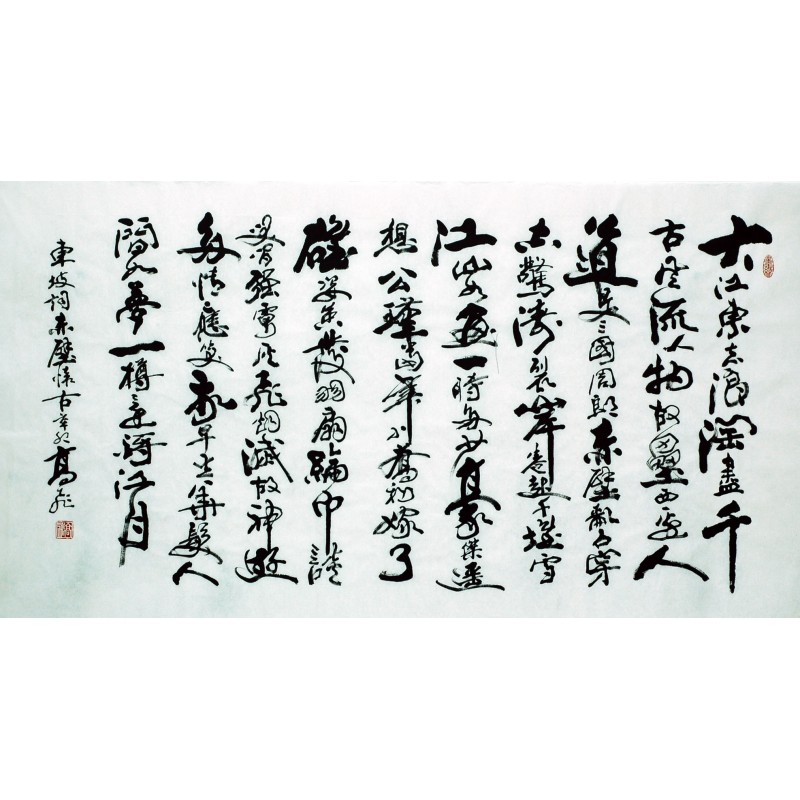 大江東去浪淘盡千
古風流人物故壘西邊人
道是三國周郎赤壁亂石穿
空驚濤裂岸卷起千堆雪
江山如畫一時多少豪傑遙
想公瑾當年小喬初嫁了
雄姿英發羽扇綸巾談
笑間強虜灰飛烟滅故神遊
多情應笑我早生華髮人
間如夢一樽還酹江月
東坡詞赤壁懷古辛卯高飛